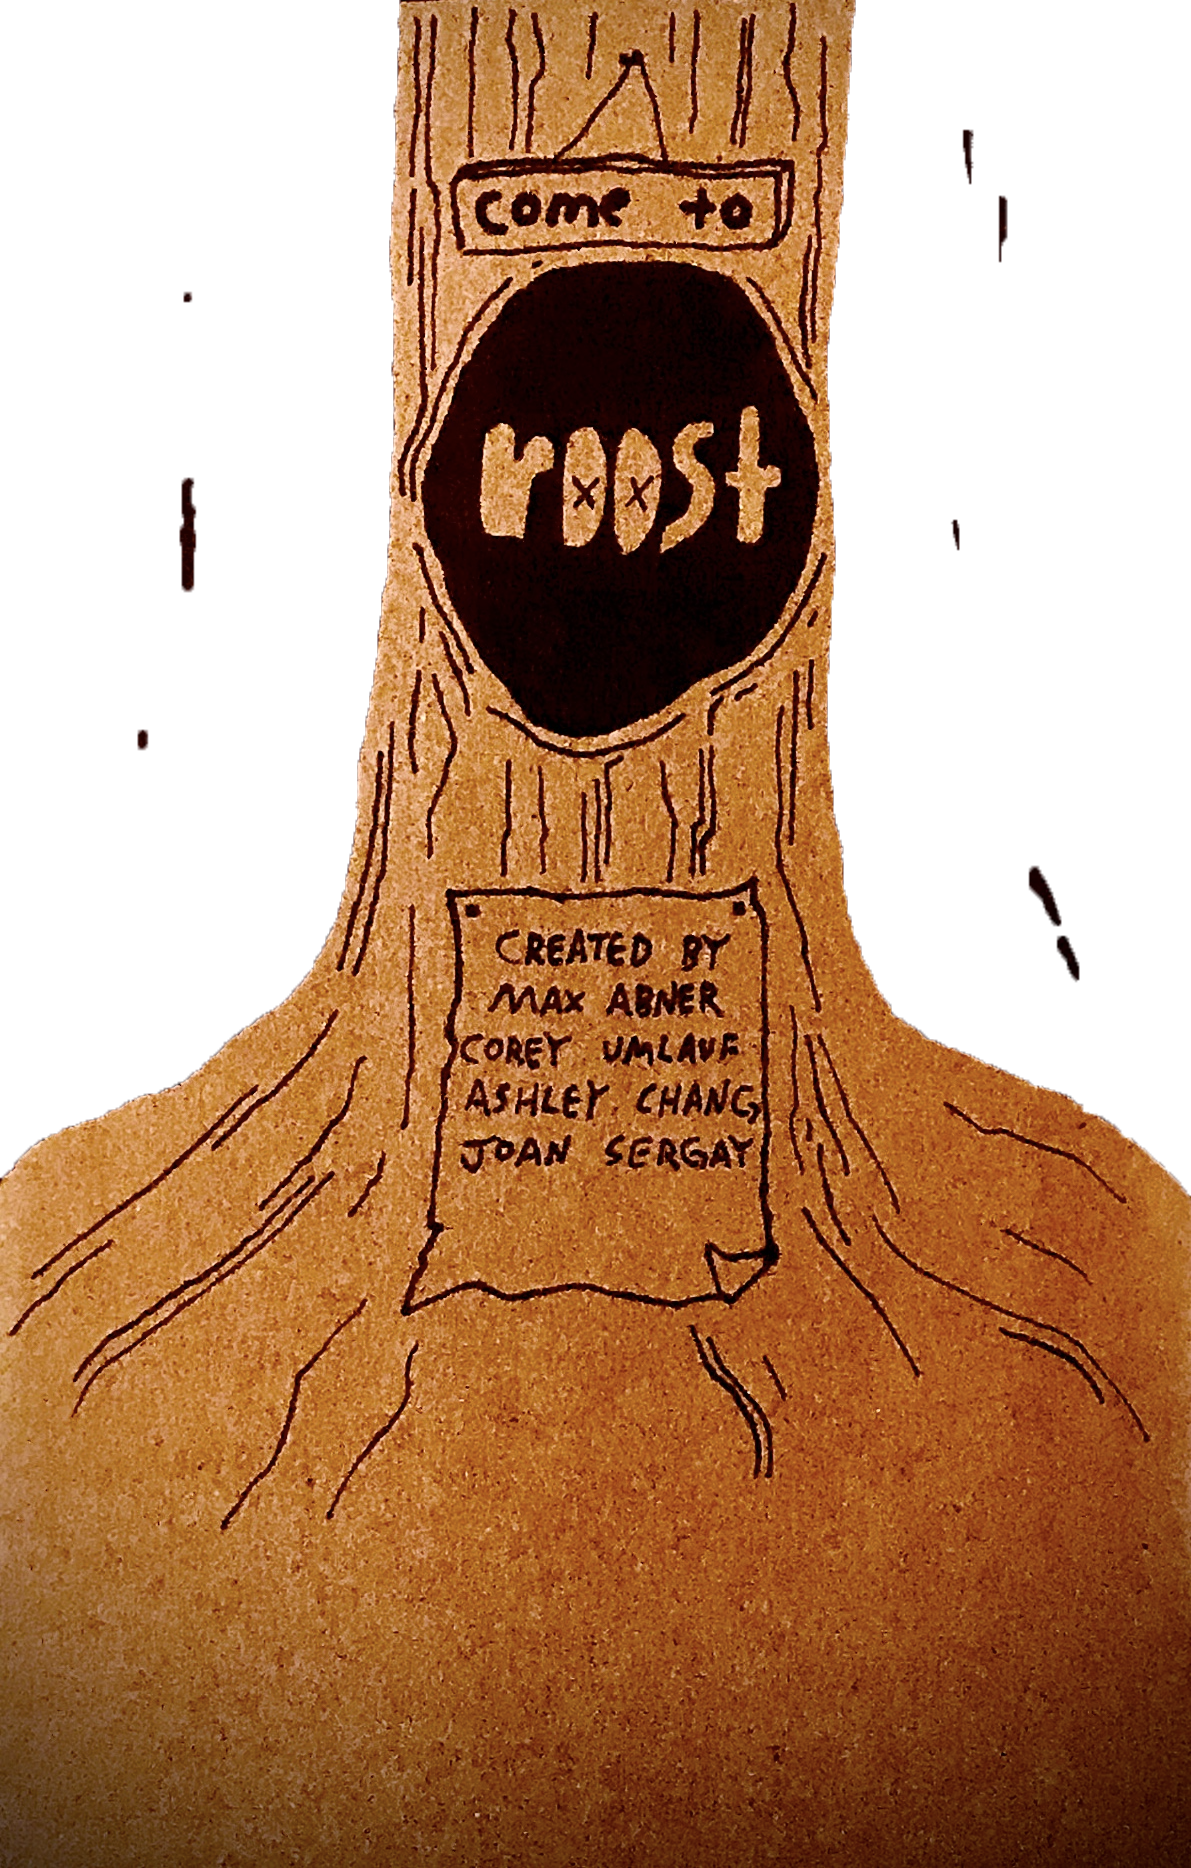 come to
roost
CREATED BY
MAX ABNER
COREY UMLAUF
ASHLEY CHANG
JOAN SERGAY